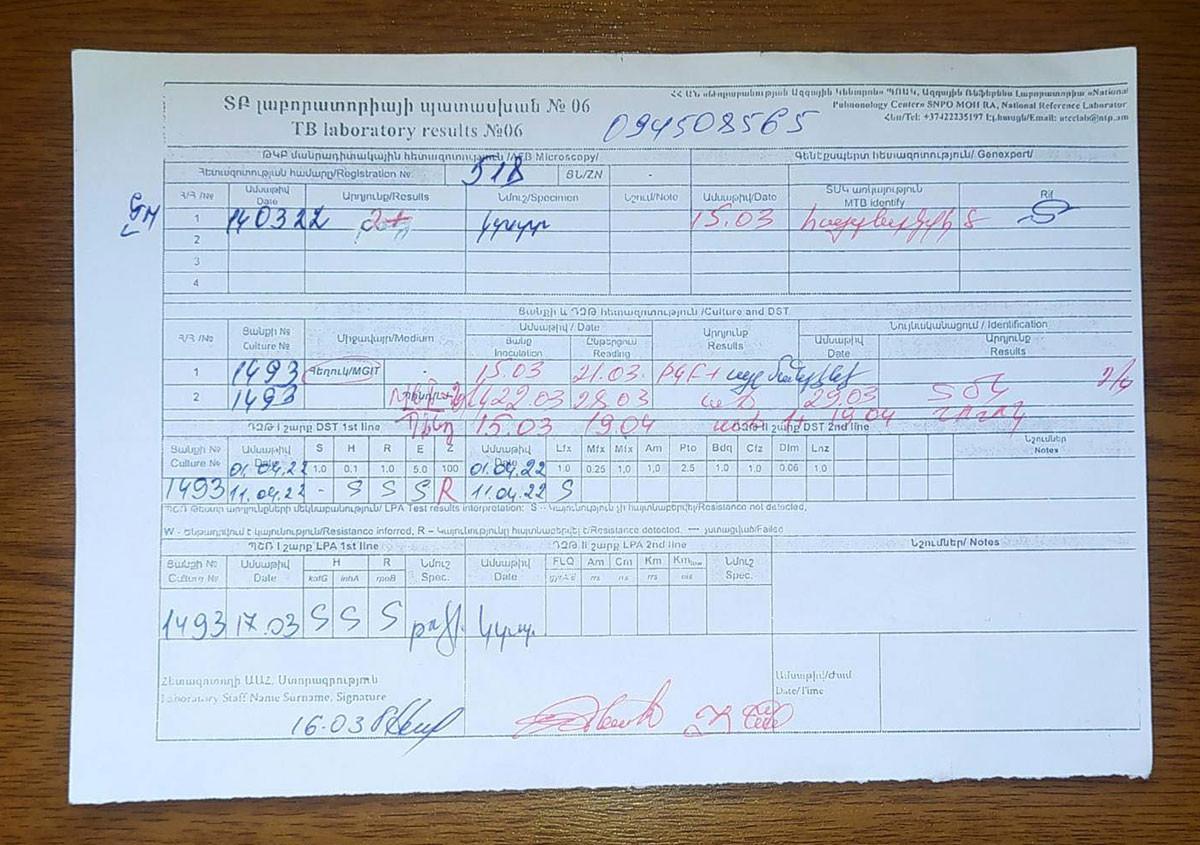 ՀՀ ԱՆ «Թոքաբանության Ազգային Կենտրոն» ՊՈԱԿ, Ազգային Ռեֆերենս Լաբորատորիա «National
ՏԲ լաբորատորիայի պատասխան № 06
Pulmonology Center» SNPO MOH RA, National Reference Laborator
TB laboratory results №06
094508565
Հեռ/Tel: +37422235197 Էլ.հասցե/Email:
ԹԿԲ մանրադիտակային հետազոտություն /AFB Microscopy/
Գենէքսպերտ հետազոտություն/ Genexpert/
Հետազոտության համարը/Registration № 518 ՑՆ/ZN -
Հ/Հ /№ Ամսաթիվ Date Արդյունք/Results Նմուշ/Specimen Նշում/Note Ամսաթիվ/Date ՏՄԿ առկայություն MTB identify Rif
1 14 03 22 2+ 15.03
2
3
4
Ցանքի և ԴԶԹ հետազոտություն /Culture and DST
Հ/Հ /№ Ցանքի № Culture № Միջավայր/Medium Ամսաթիվ / Date Արդյունք Results Նույնականացում / Identification
Ցանք Inoculation Ընթերցում Reading Ամսաթիվ Date Արդյունք Results
1 1493 Հեղուկ/MGIT - 15.03 21.03.
2 1493 22.03 28.03 29.03 ՏՄԿ
15.03 19.04 1+ 19.04
ԴԶԹ I շարք DST 1st line ԴԶԹ II շարք DST 2nd line
Ցանքի № Culture № Ամսաթիվ S H R E Z Ամսաթիվ Lfx Mfx Mfx Am Pto Bdq Cfz Dlm Lnz Նշումներ Notes
01.04.22 1.0 0.1 1.0 5.0 100 01.04.22 1.0 0.25 1,0 1,0 2.5 1.0 1.0 0.06 1.0
1493 11.04.22 - S S S R 11.04.22 S
ՊՇՌ Թեստի արդյունքների մեկնաբանություն/ LPA Test results interpretation: S – Կայունություն չի հայտնաբերվել/Resistance not detected,
W - Ենթադրվում է կայունություն/Resistance inferred, R – Կայունությունը հայտնաբերվել է/Resistance detected, — չստացված/Failed
ՊՇՌ I շարք LPA 1st line ԴԶԹ II շարք LPA 2nd line Նշումներ/ Notes
Ցանքի № Culture № Ամսաթիվ Date H R Նմուշ Spec. Ամսաթիվ Date FLQ Am Cm Km Km Նմուշ Spec.
katG inhA rpoB rrs rrs rrs eis
1493 17.03 S S S
Հետազոտողի ԱԱՀ, Ստորագրություն
Laboratory Staff Name Surname, Signature
Ամսաթիվ/Ժամ
Date/Time
16.03